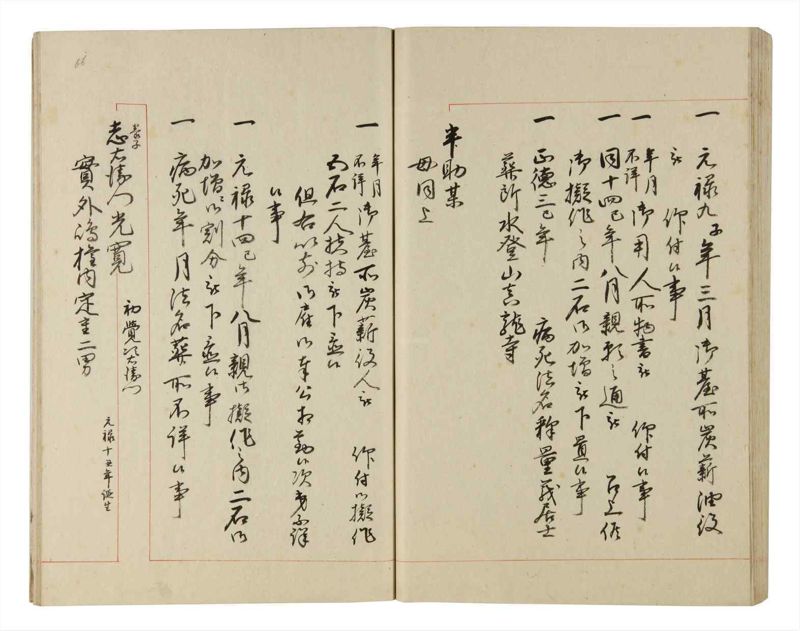 一 元禄九子年三月御臺所炭薪油役
被 仰付候事
一 年月不詳 御用人所物書被 仰付候事
一 同十四巳年八月親願之通被 召上候
御擬作之内二石御加増被下置候事
一 正徳三巳年 病死法名釋量義居士
葬所水登山真龍寺
半助某
母同上
一 年月不詳 御臺所炭薪役人被 仰付御擬作
四石二人扶持被下置候
但右以前御奉公相勤候次第不詳
候事
一 元禄十四巳年八月親御擬作之内二石御
加増御割分被下置候事
一 病死年月法名葬所不詳候事
養子
志右衛門光寛 初覺右衛門 元禄十五年誕生
實外嶋権内定主二男